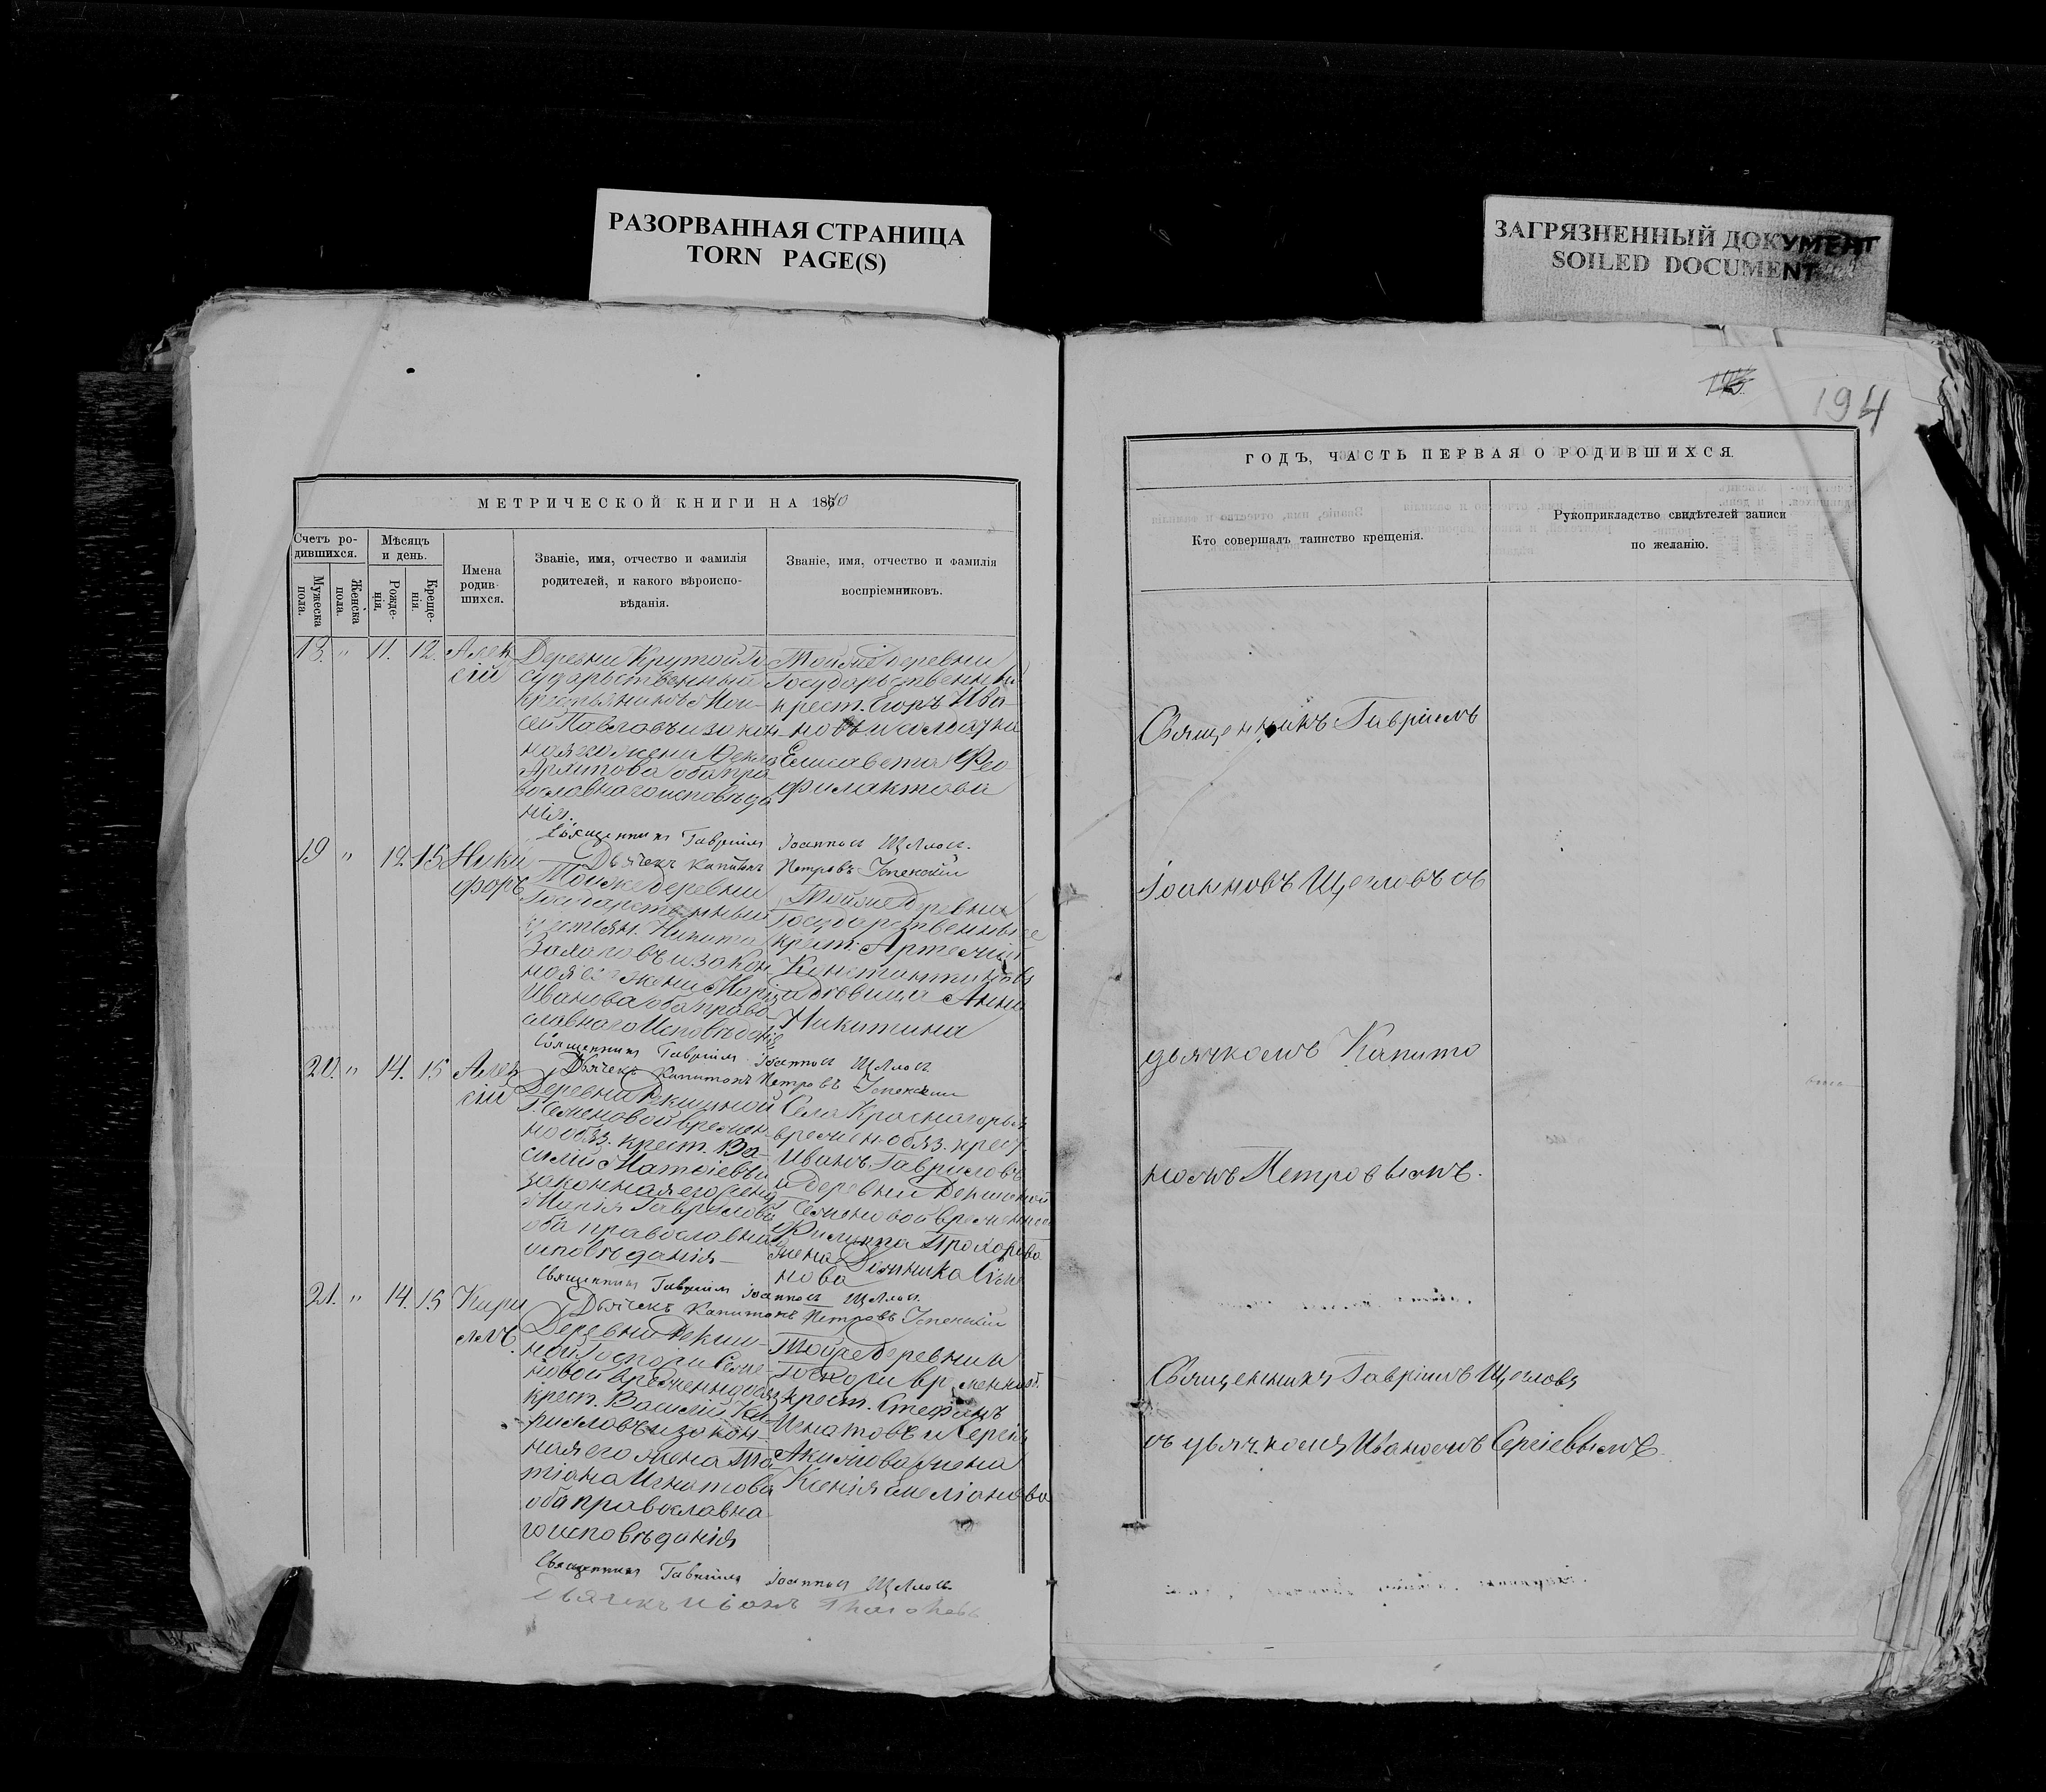 РАЗОРВАННАЯ СТРАНИЦА
TORN PAGE(S)
ЗАГРЯЗНЕННЫЙ ДОКУМЕНТ
SOILED DOCUMENT
МЕТРИЧЕСКОЙ КНИГИ НА 1870
Счетъ ро-
дившихся.
Мужеска
пола.
Женска
пола.
Мѣсяцъ
и день.
Рожде-
нія.
Креще-
нія.
Имена
родив-
шихся.
Званіе, имя, отчество и фамилія
родителей, и какого вѣроиспо-
вѣданія.
Званіе, имя, отчество и фамилія
воспріемниковъ.
13. " 11. 12. Алек
сій
Деревни Крутой Го
сударственный
крестьянинъ Мои-
сей Павловъ и закон
ная его жена Фекла
Архипова оба пра
вославнаго исповѣда
нія.
Тойже деревни
Государственный
крест. Егоръ Ива
новъ и
Елисавета Фео
филактова
Священникъ Гавріилъ Іоанновъ Щегловъ.
Дьячекъ Капитонъ Петровъ Успенскій
19 " 12. 15 Ники
форъ
Тойже деревни
Государственный
крестьян. Никита
и закон
ная его жена Марія
Иванова оба право
славнаго Исповѣданія
Тойже деревни
Государственные
крест. Артемій
Константиновъ
и дѣвица Анна
Никитина
Священникъ Гавріилъ Іоанновъ Щегловъ
Дьячекъ Капитонъ Петровъ Успенскій
20. " 14. 15 Алек
сій
Деревни
Г. Семеновой времен
но обяз. крест. Ва-
силій Матвіевъ и
законная его жена
Марія Гаврилова
оба православнаго
исповѣданія
Села Красногорья
времен обяз. крест.
Иванъ Гавриловъ
и деревни
Семеновой временно
Филиппа Прохорова
жена Домника
нова
Священникъ Гавріилъ Іоанновъ Щегловъ
Дьячекъ Капитонъ Петровъ Успенскій
21. " 14. 15 Кири
ллъ.
Деревни
ной Госпожи Семе
новой временнообяз
крест. Василій Ки
рилловъ и закон-
ная его жена Та
тіана Игнатова
оба православна
го исповѣданія
Тойже деревни и
Госпожи временноо.
крест. Стефанъ
Игнатовъ и Сергія
Акимова жена
Ксенія Емеліанова
Священникъ Гавріилъ Іоанновъ Щегловъ
Дьячекъ
194
ГОДЪ, ЧАСТЬ ПЕРВАЯ О РОДИВШИХСЯ.
Кто совершалъ таинство крещенія.
Рукоприкладство свидѣтелей записи
по желанію.
Священникъ Гавріилъ
Іоанновъ Щегловъ съ
дьячкомъ Капито
номъ Петровымъ.
Священникъ Гавріилъ Щегловъ
съ дьячкомъ Иваномъ Сергіевымъ